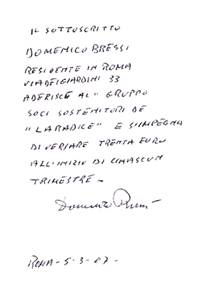 IL SOTTOSCRITTO
DOMENICO BRESSI
RESIDENTE IN ROMA
VIA DEI GIARDINI 33
ADERISCE AL "GRUPPO
SOCI SOSTENITORI DE
"LA RADICE" E SI IMPEGNA
DI VERSARE TRENTA EURO
ALL'INIZIO DI CIASCUN
TRIMESTRE -
Domenico Bressi
ROMA - 5-3-07 -